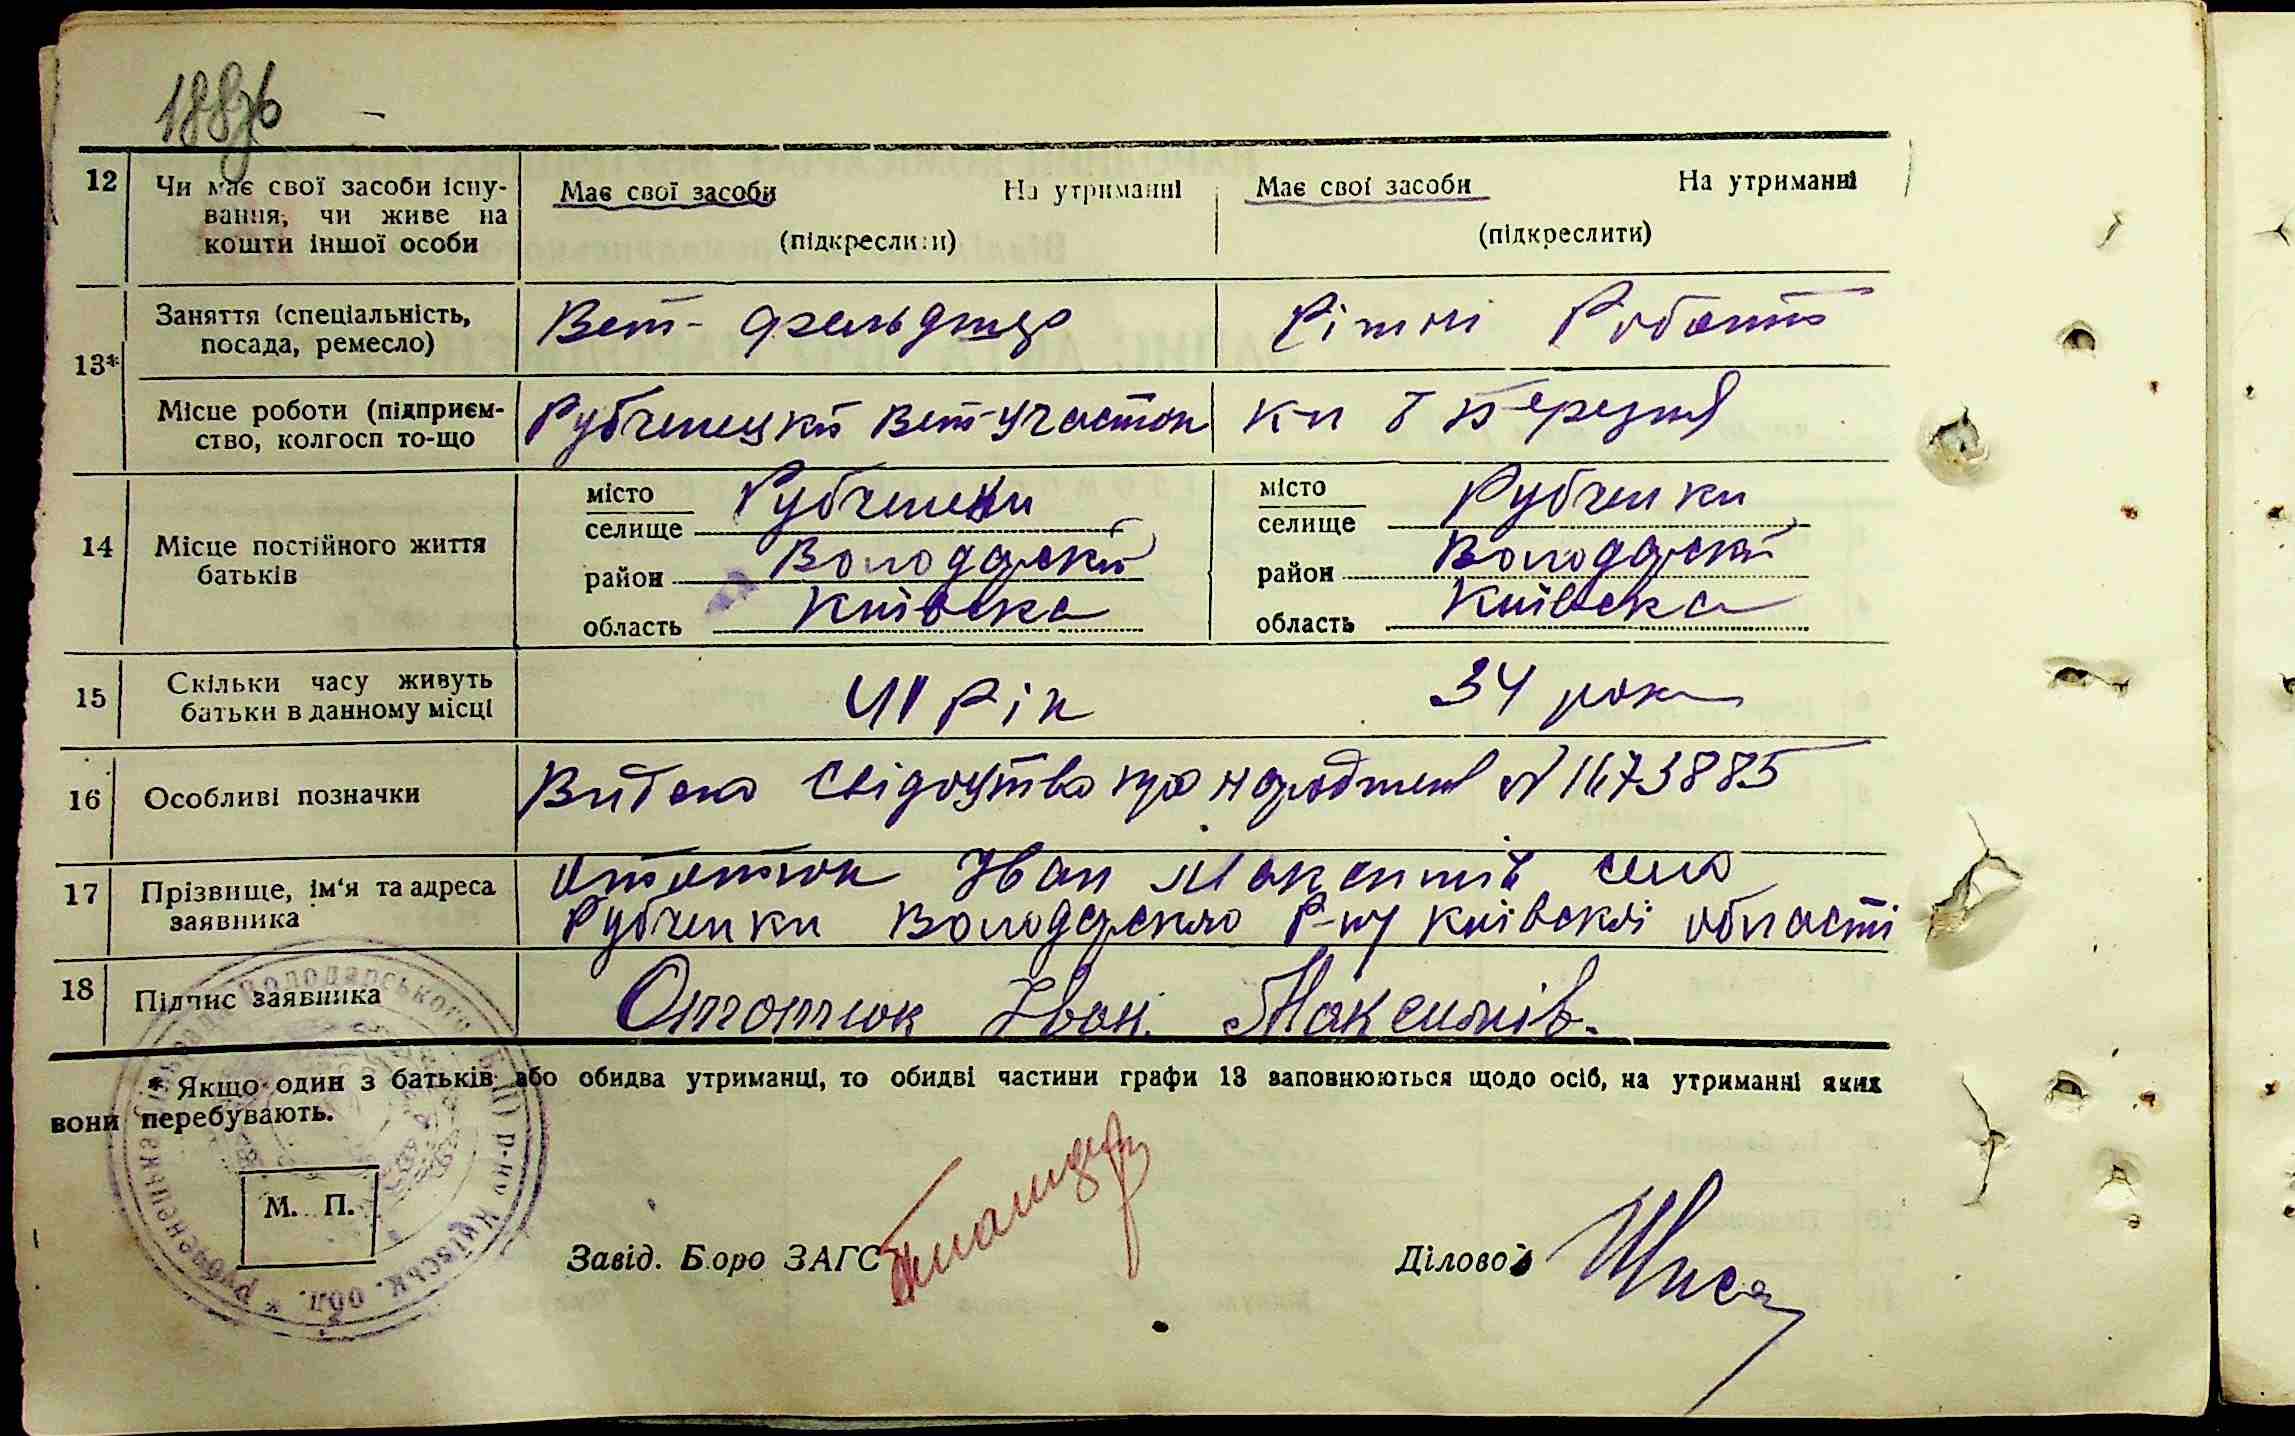 188 зв
12 Чи має свої засоби існу- Має свої засоби На утриманні Має свої засоби На утриманні
вання, чи живе на
кошти іншої особи (підкреслити) (підкреслити)
13* Заняття (спеціальність, Вет- фельдшер Різні Роботи
посада, ремесло)
Місце роботи (підприєм- Рубченецкий Вет участок к-п 8 Березня
ство, колгосп то-що
14 Місце постійного життя батьків
місто Рубченки місто Рубченки
селище селище
район Володарский район Володарский
область Київска область Київска
15 Скільки часу живуть 41 Рік 34 роки
батьки в данному місці
16 Особливі позначки Видано Свідоцтво про народження № 1673885
17 Прізвище, ім'я та адреса Отаманюк Іван Максимів села
заявника Рубченки Володарского Р-ну Київскої області
18 Підпис заявника Іван Максимів.
* Якщо один з батьків або обидва утриманці, то обидві частини графи 13 заповнюються щодо осіб, на утриманні яких
вони перебувають.
М. П.
Завід. Бюро ЗАГС
Діловод
Володарського р-ну Київськ. обл. * Рубченецька